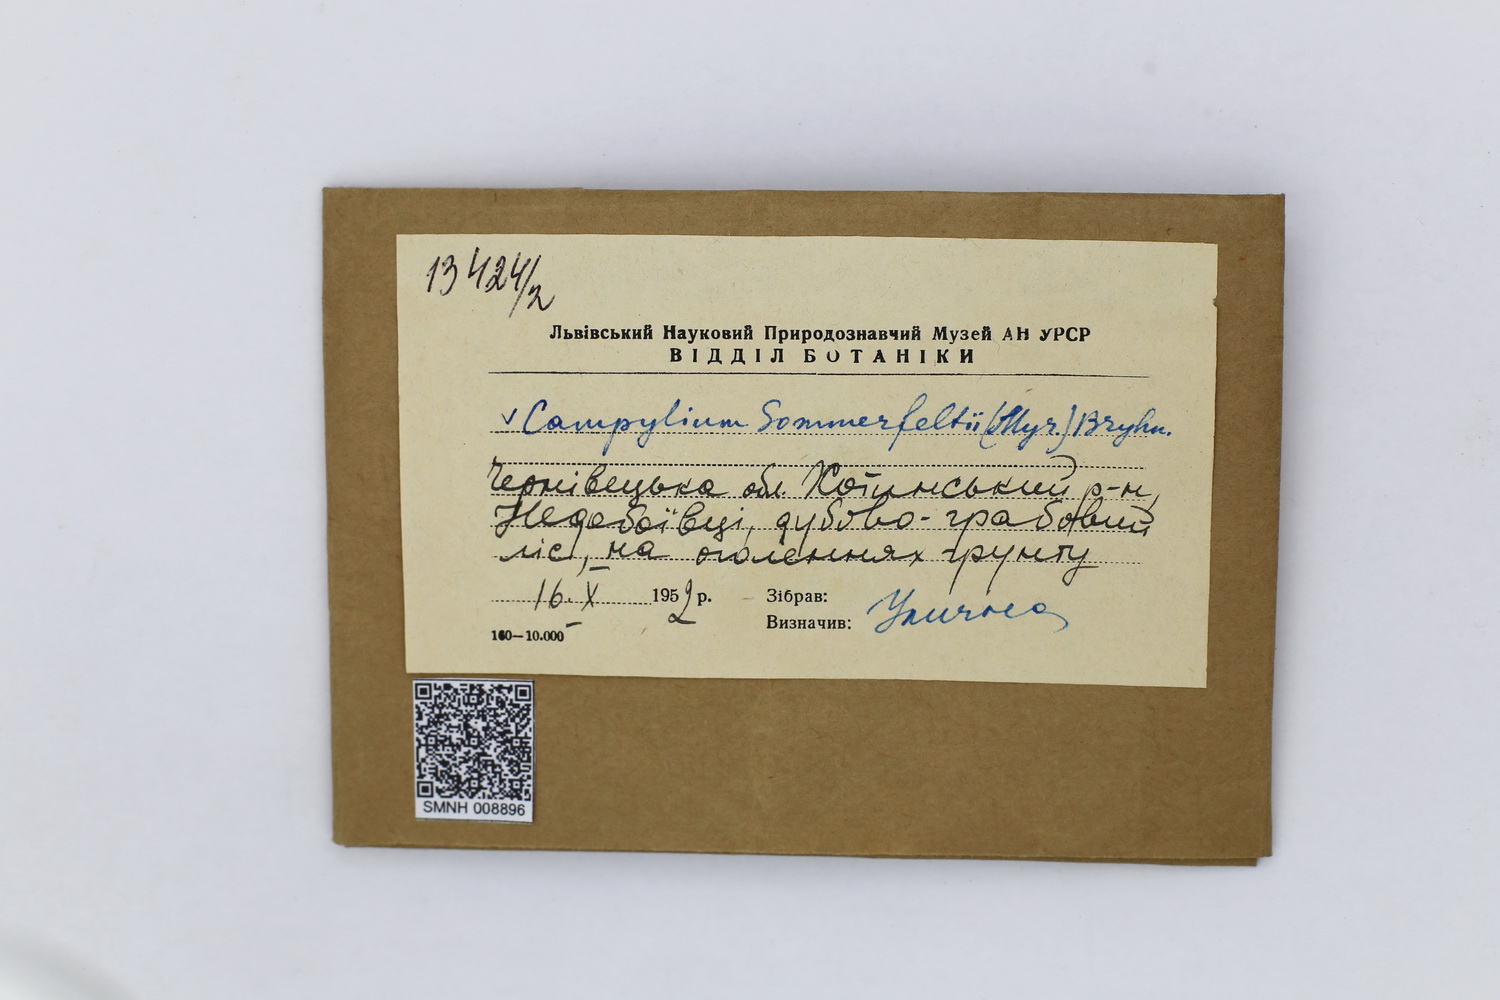 13424/2
Львівський Науковий Природознавчий Музей АН УРСР
ВІДДІЛ БОТАНІКИ
v Campylium Sommerfeltii (Myr.) Bryhn.
Чернівецька обл Хотинський р-н,
Недобоївці, дубово-грабовий
ліс, на оголеннях ґрунту
16.X 1952 р.
Зібрав:
Визначив: Улична
160—10.000
SMNH 008896